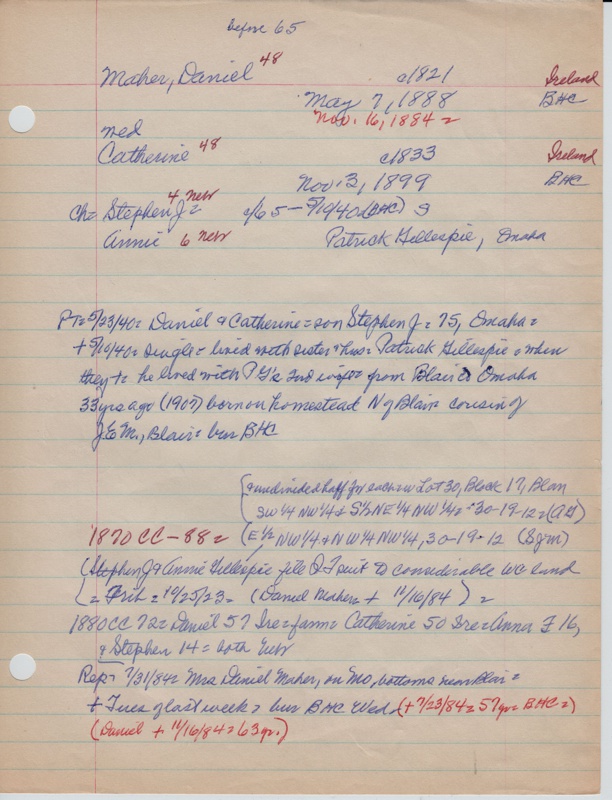 before 65
Maher, Daniel 48 c1821 Ireland
May 7, 1888 BHC
Nov. 16, 1884 =
med
Catherine 48 c1833 Ireland
Nov. 3, 1899 BHC
ch = Stephen J = 4 Nebr c/65 - 5/10/40 (BHC) S
Annie 6 Nebr Patrick Gillespie, Omaha
PT = 5/23/40 = Daniel & Catherine = son Stephen J = 75, Omaha =
+ 5/10/40 = single = lived with sister & hus = Patrick Gillespie = when
they + = he lived with P G's 2nd wife = from Blair to Omaha
33 yrs ago (1907) born on homestead N of Blair cousin of
J.E.M., Blair = bur BHC
(& undivided half for each in Lot 30, Block 17, Blair
SW 1/4 NW 1/4 & S 1/2 NE 1/4 NW 1/4 = 30-19-12 = (AG)
1870 CC - 88 = (E 1/2 NW 1/4 & NW 1/4 NW 1/4, 30-19-12 (SJM)
(Stephen J & Annie Gillespie file Q T suit to considerable WC land
= Trib = 10/25/23 = (Daniel Maher + 11/16/84) =
1880 CC 72 = Daniel 57 Ire = farm = Catherine 50 Ire = Anna F 16,
& Stephen 14 = both Nebr
Rep = 7/31/84 = Mrs Daniel Maher, on Mo. bottoms near Blair =
+ Tues of last week = bur BHC Wed. (+ 7/23/84 = 57 yrs = BHC =)
(Daniel + 11/16/84 = 63 yrs.)